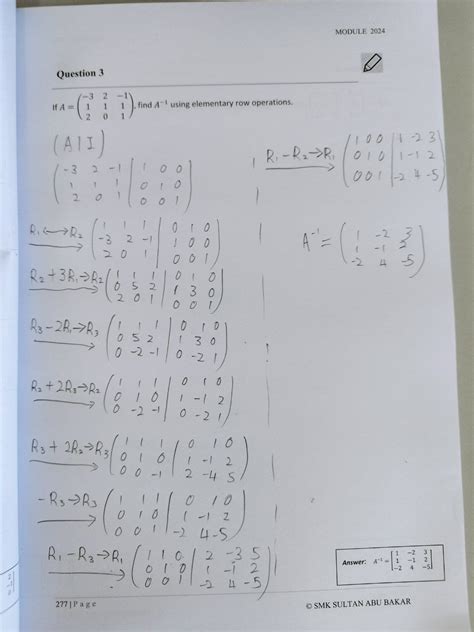 MODULE 2024
Question 3
If A = (-3 2 -1
1 1 1
2 0 1), find A⁻¹ using elementary row operations.
(A|I)
(-3 2 -1 | 1 0 0
1 1 1 | 0 1 0
2 0 1 | 0 0 1)
R₁ ↔ R₂ (1 1 1 | 0 1 0
-3 2 -1 | 1 0 0
2 0 1 | 0 0 1)
R₂ + 3R₁ → R₂ (1 1 1 | 0 1 0
0 5 2 | 1 3 0
2 0 1 | 0 0 1)
R₃ - 2R₁ → R₃ (1 1 1 | 0 1 0
0 5 2 | 1 3 0
0 -2 -1 | 0 -2 1)
R₂ + 2R₃ → R₂ (1 1 1 | 0 1 0
0 1 0 | 1 -1 2
0 -2 -1 | 0 -2 1)
R₃ + 2R₂ → R₃ (1 1 1 | 0 1 0
0 1 0 | 1 -1 2
0 0 -1 | 2 -4 5)
-R₃ → R₃ (1 1 1 | 0 1 0
0 1 0 | 1 -1 2
0 0 1 | -2 4 -5)
R₁ - R₃ → R₁ (1 1 0 | 2 -3 5
0 1 0 | 1 -1 2
0 0 1 | -2 4 -5)
R₁ - R₂ → R₁ (1 0 0 | 1 -2 3
0 1 0 | 1 -1 2
0 0 1 | -2 4 -5)
A⁻¹ = (1 -2 3
1 -1 2
-2 4 -5)
Answer: A⁻¹ = [1 -2 3
1 -1 2
-2 4 -5]
277 | Page
© SMK SULTAN ABU BAKAR